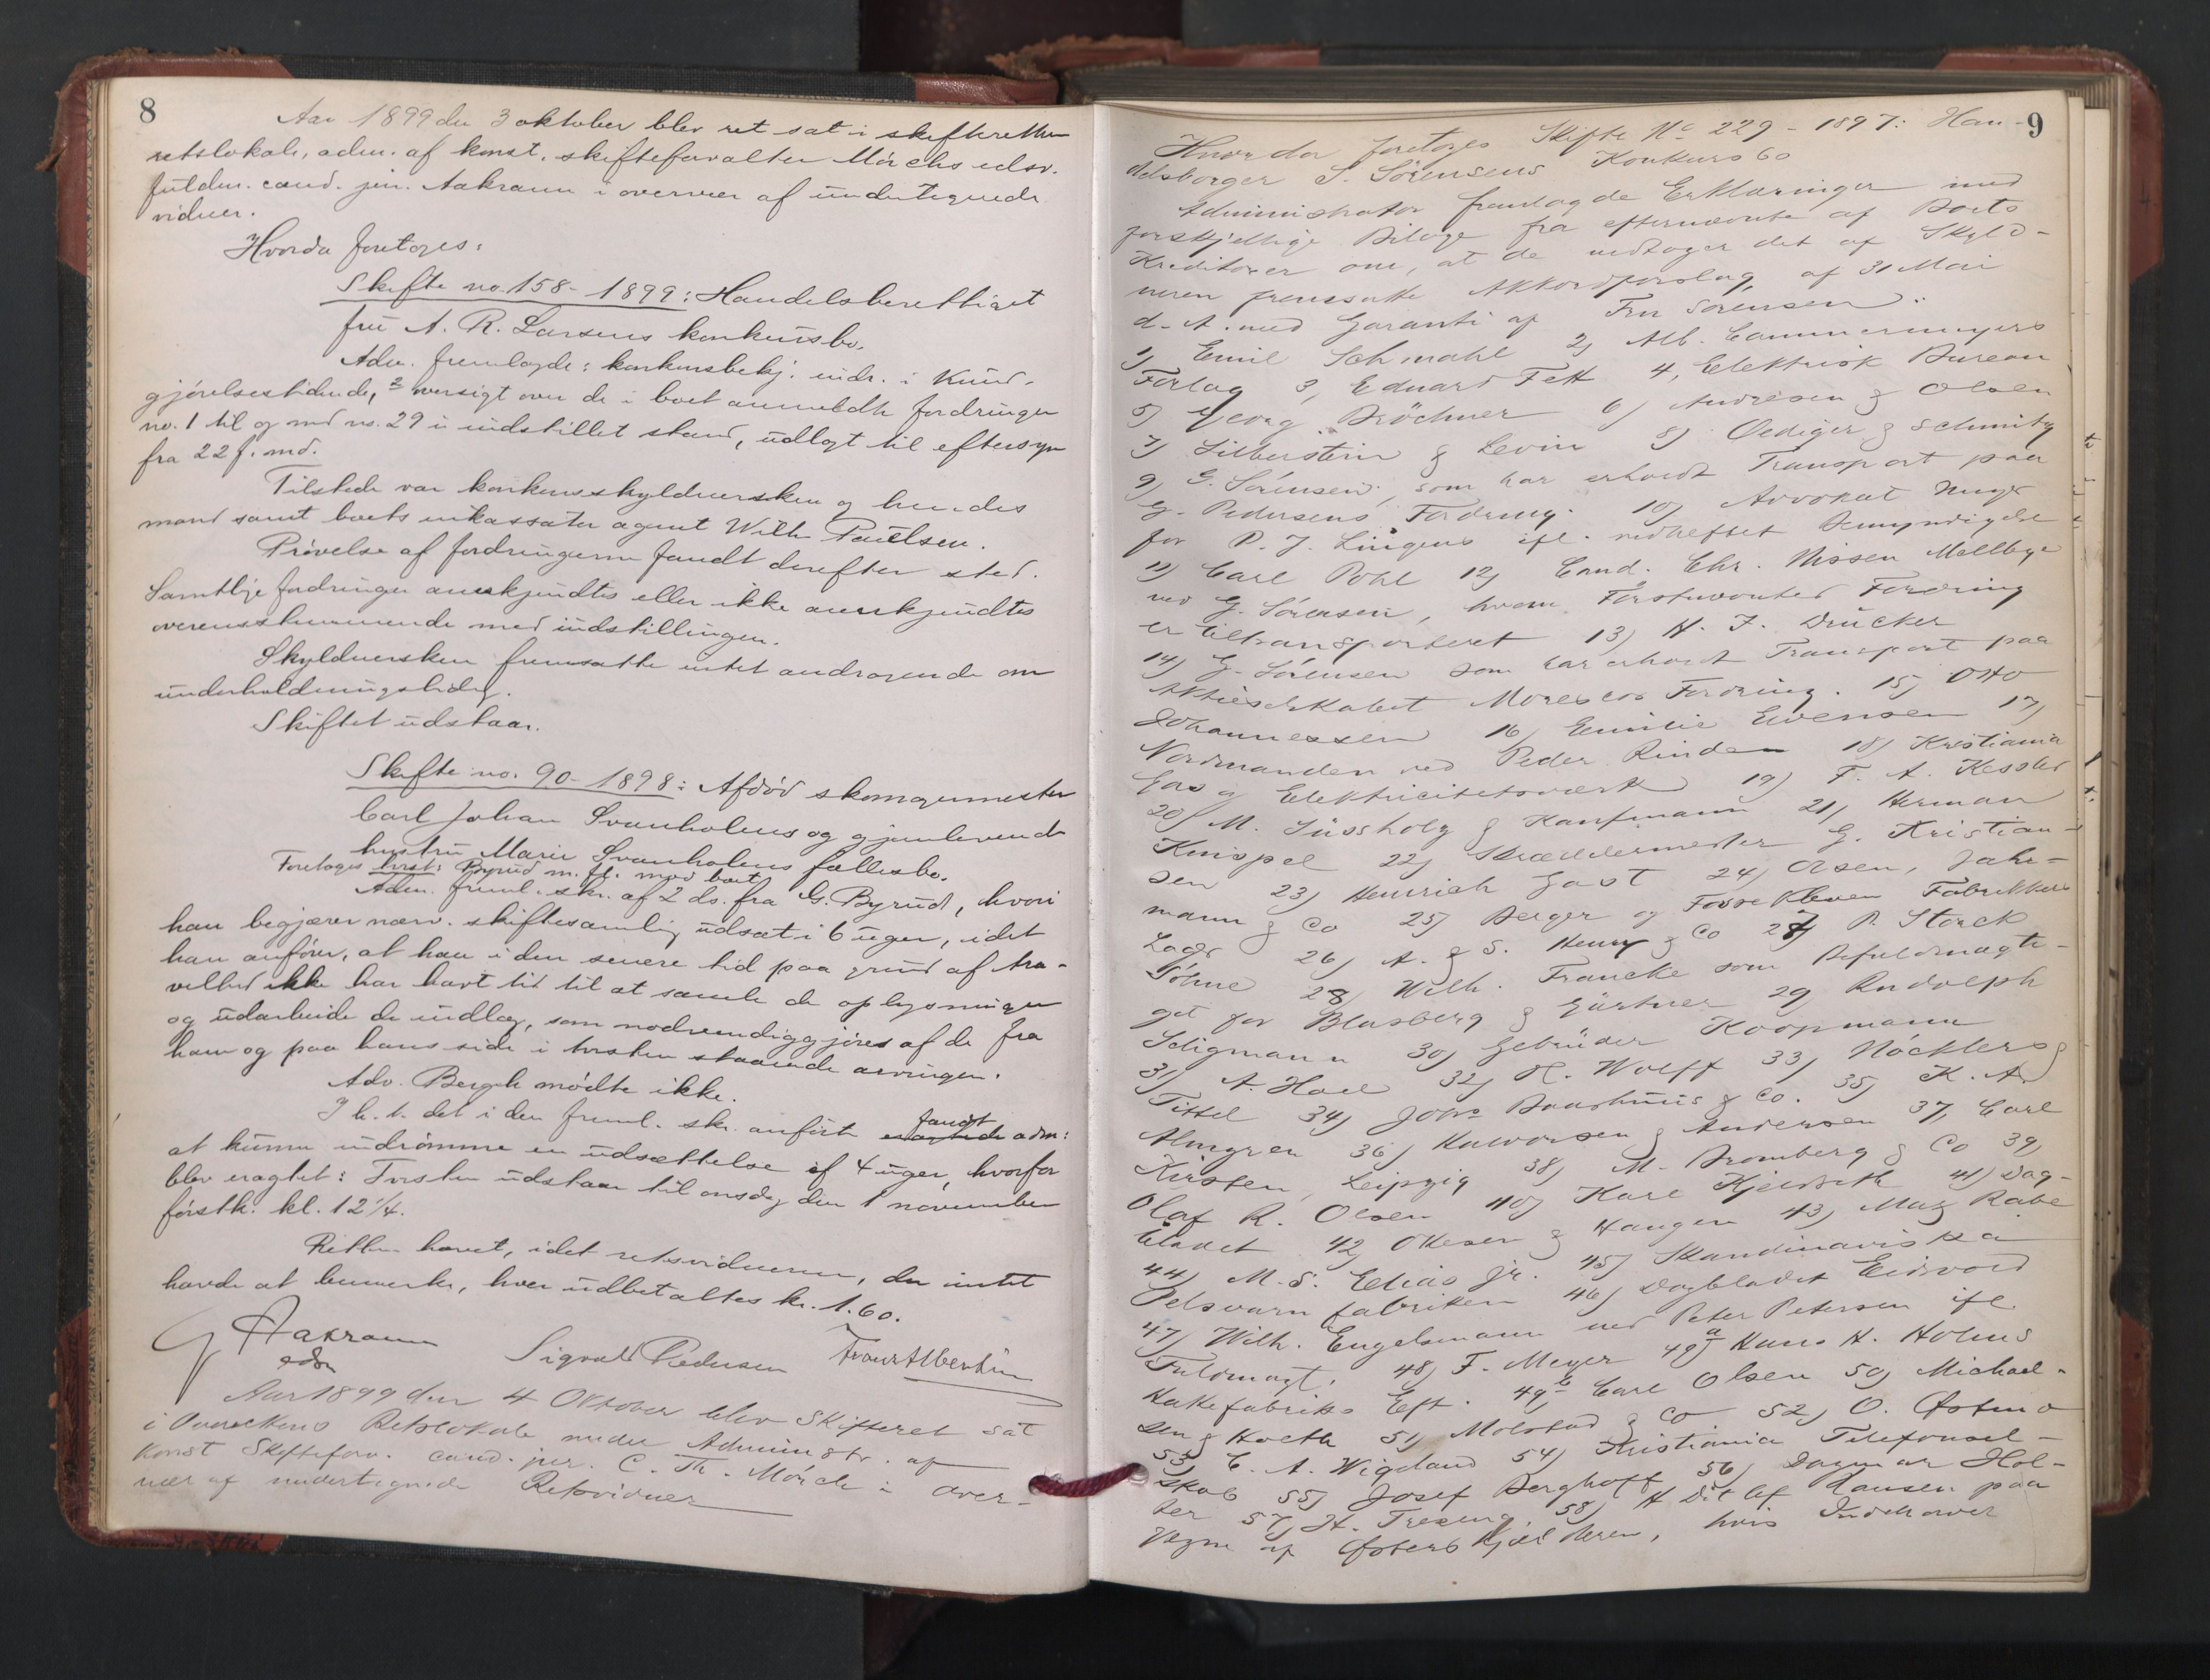 8
Aar 1899 den 3 oktober blev ret sat i skifterettens
retslokale, adm. af konst. skifteforvalter Mörchs edsv.
fuldm. cand. jur. Aakrann i overvær af undertegnede
vidner.
Hvorda foretoges:
Skifte no. 158 - 1899: Handelsberettiget
fru A. R. Larsens konkursbo.
Adm. fremlagde: konkursbekj. indr. i Kund-
gjørelsestidende, 2 oversigt over de i boet anmeldte fordringer
no. 1 til og med no. 29 i indstillet stand, udlagt til eftersyn
fra 22 f. md.
Tilstede var konkursskyldnersken og hendes
mand samt boets inkassator agent Wilh. Paulsen.
Prøvelse af fordringerne fandt derefter sted.
Samtlige fordringer anerkjendtes eller ikke anerkjendtes
overensstemmende med indstillingen.
Skyldnersken fremsatte intet andragende om
underholdningsbidrag.
Skiftet udstaar.
Skifte no. 90 - 1898: Afdød skomagermester
Carl Johan Svanholms og gjenlevende
hustru Marie Svanholms fællesbo.
Foretoges tvist: Byrud m. fl. mod boet
Adm. freml. skr. af 2 ds. fra G. Byrud, hvori
han begjærer nærv. skiftesamling udsat i 6 uger, idet
han anfører, at han i den senere tid paa grund af tra-
velhed ikke har havt tid til at samle de oplysninger
og udarbeide de indlæg, som nødvendiggjøres af de fra
ham og paa hans side i tvisten staaende arvinger.
Adv. Bergh mødte ikke.
I h. t. det i den freml. skr. anførte fandt adm:
at kunne indrømme en udsættelse af 4 uger, hvorfor
blev eragtet: Tvisten udstaar til onsdag den 1 november
førstk. kl. 12 1/4.
Retten hævet, idet retsvidnerne, der intet
havde at bemerke, hver udbetaltes kr. 1.60.
Aakrann
edsv
Sigvald Pedersen
Franz Albertsen
Aar 1899 den 4 Oktober blev Skifteret sat
i Overettens Retslokale under Administr. af
Konst Skifteforv. cand. jur. C. Th. Mörch i Over-
vær af undertegnede Retsvidner
9
Hvorda foretoges Skifte No 229 - 1897: Han-
delsborger S. Sörensens Konkursbo
Administrator fremlagde Erklæringer med
forskjellige Bilage fra efternævnte af Boets
Kreditorer om, at de vedtager det af Skyld-
neren fremsatte Akkordforslag af 31 Mai
d. A. med Garanti af Fru Sörensen:
1) Emil Schmahl 2) Alb. Cammermeyers
Forlag 3, Eduard Fett 4, Elektrisk Bureau
5) Georg Bröchner 6) Andresen & Olsen
7) Silberstein & Levin 8) Oediger & Schmitz
9) G. Sörensen, som har erholdt Transport paa
G. Pedersens Fordring. 10) Advokat Unger
for P. J. Lingens ifl. vedheftet Bemyndigelse
11) Carl Pohl 12) Cand. Chr. Nissen Mellbye
ved G. Sörensen, hvem Förstnævntes Fordring
er tiltransporteret 13) H. F. Drücker
14) G. Sörensen som har erholdt Transport paa
Aktieselskabet Morescos Fordring. 15) Otto
Johannessen 16) Emilie Evensen 17)
Nordmanden ved Peder Rinde 18) Kristiania
Gas og Elektricitetsværk 19) F. A. Kessler
20) M. Süssholz & Kaufmann 21) Herman
Knispel 22) Skræddermester G. Kristian-
sen 23) Heinrich Gast 24) Olsen, Jahr-
mann & Co 25) Berger og Fossekleven Fabrikkers
Lager 26) A. & S. Henry & Co 27) P. Storck
Söhne 28) Wilh. Francke som Befuldmægti-
get for Blasberg & Gärtner 29) Rudolph
Seligmann 30) Gebrüder Koopmann
31) A. Hoel 32) H. Wolff 33) Nöcklers &
Tittel 34) Johs Baashuus & Co. 35) K. A.
Almgren 36) Halvorsen & Andersen 37) Carl
Kirsten, Leipzig 38) M. Bromberg & Co 39)
Olaf R. Olsen 40) Karl Kjelsvik 41) Dag-
bladet 42) Olesen & Haugen 43) Max Rabe
44) M. S. Elias jr. 45) Skandinaviska
Pelsvarufabriken 46) Dagbladet Eidsvold
47) Wilh. Engelsmann ved Peter Petersen ifl.
Fuldmagt, 48) F. Meyer 49a) Hans H. Holms
Kakefabriks Eft. 49b) Carl Olsen 50) Michael-
sen & Hoeth 51) Molstad & Co 52) O. Østmo
53) C. A. Wigeland 54) Kristiania Telefonsel-
skab 55) Josef Berghoff 56) Dagmar Hol-
ter 57) H. Treseng 58) H Ditlef Hansen paa
Vegne af Østers Kjælderen, hvis Indehaver